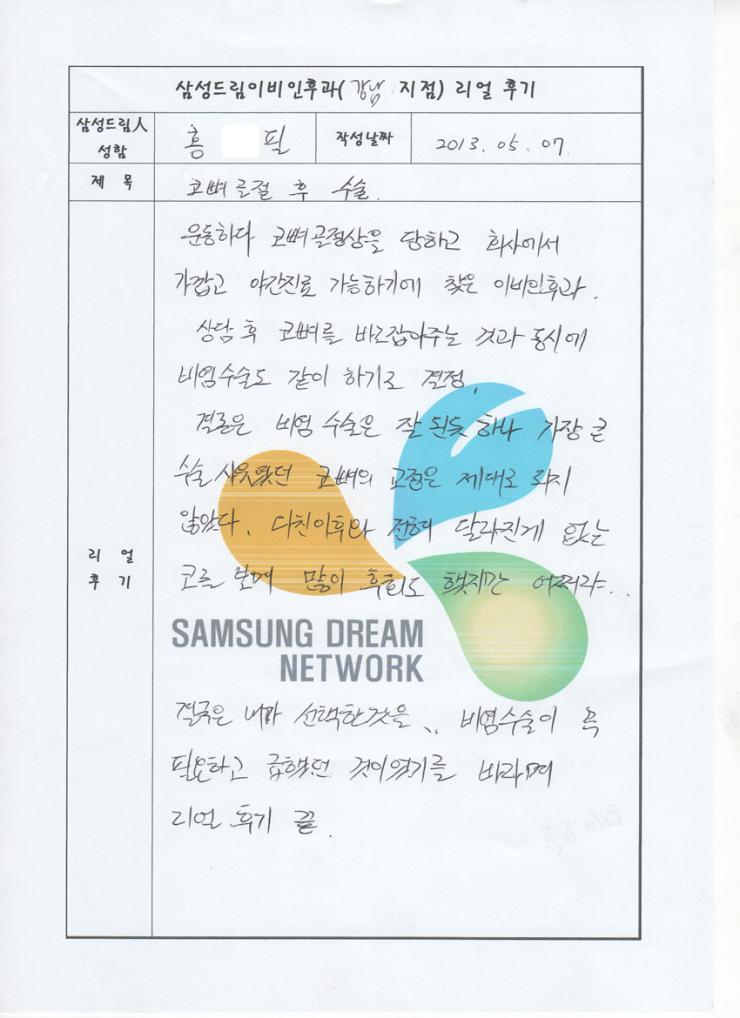 삼성드림이비인후과(강남 지점) 리얼 후기
삼성드림人 성함
홍 필
작성날짜
2013. 05. 07.
제 목
코뼈 골절 후 수술.
리 얼
후 기
운동하다 코뼈골절상을 당하고 회사에서
가깝고 야간진료 가능하기에 찾은 이비인후과.
상담 후 코뼈를 바로잡아주는 것과 동시에
비염수술도 같이 하기로 결정.
결론은 비염 수술은 잘 된듯 하나 가장 큰
수술 사유였던 코뼈의 교정은 제대로 되지
않았다. 다친이후와 전혀 달라진게 없는
코를 보며 많이 후회도 했지만 어쩌랴...
SAMSUNG DREAM
NETWORK
결국은 내가 선택한것을.. 비염수술이 꼭
필요하고 급했던 것이였기를 바라며
리얼 후기 끝.